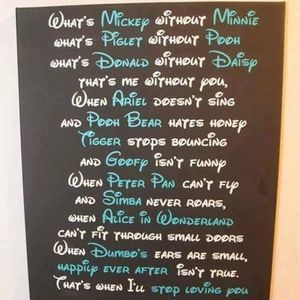 What's Mickey without Minnie
what's Piglet without Pooh
what's Donald without Daisy
that's me without you,
When Ariel doesn't sing
and Pooh Bear hates honey
Tigger stops bouncing
and Goofy isn't funny
When Peter Pan can't fly
and Simba never roars,
when Alice in Wonderland
can't fit through small doors
When Dumbo's ears are small,
happily ever after isn't true.
That's when I'll stop loving you